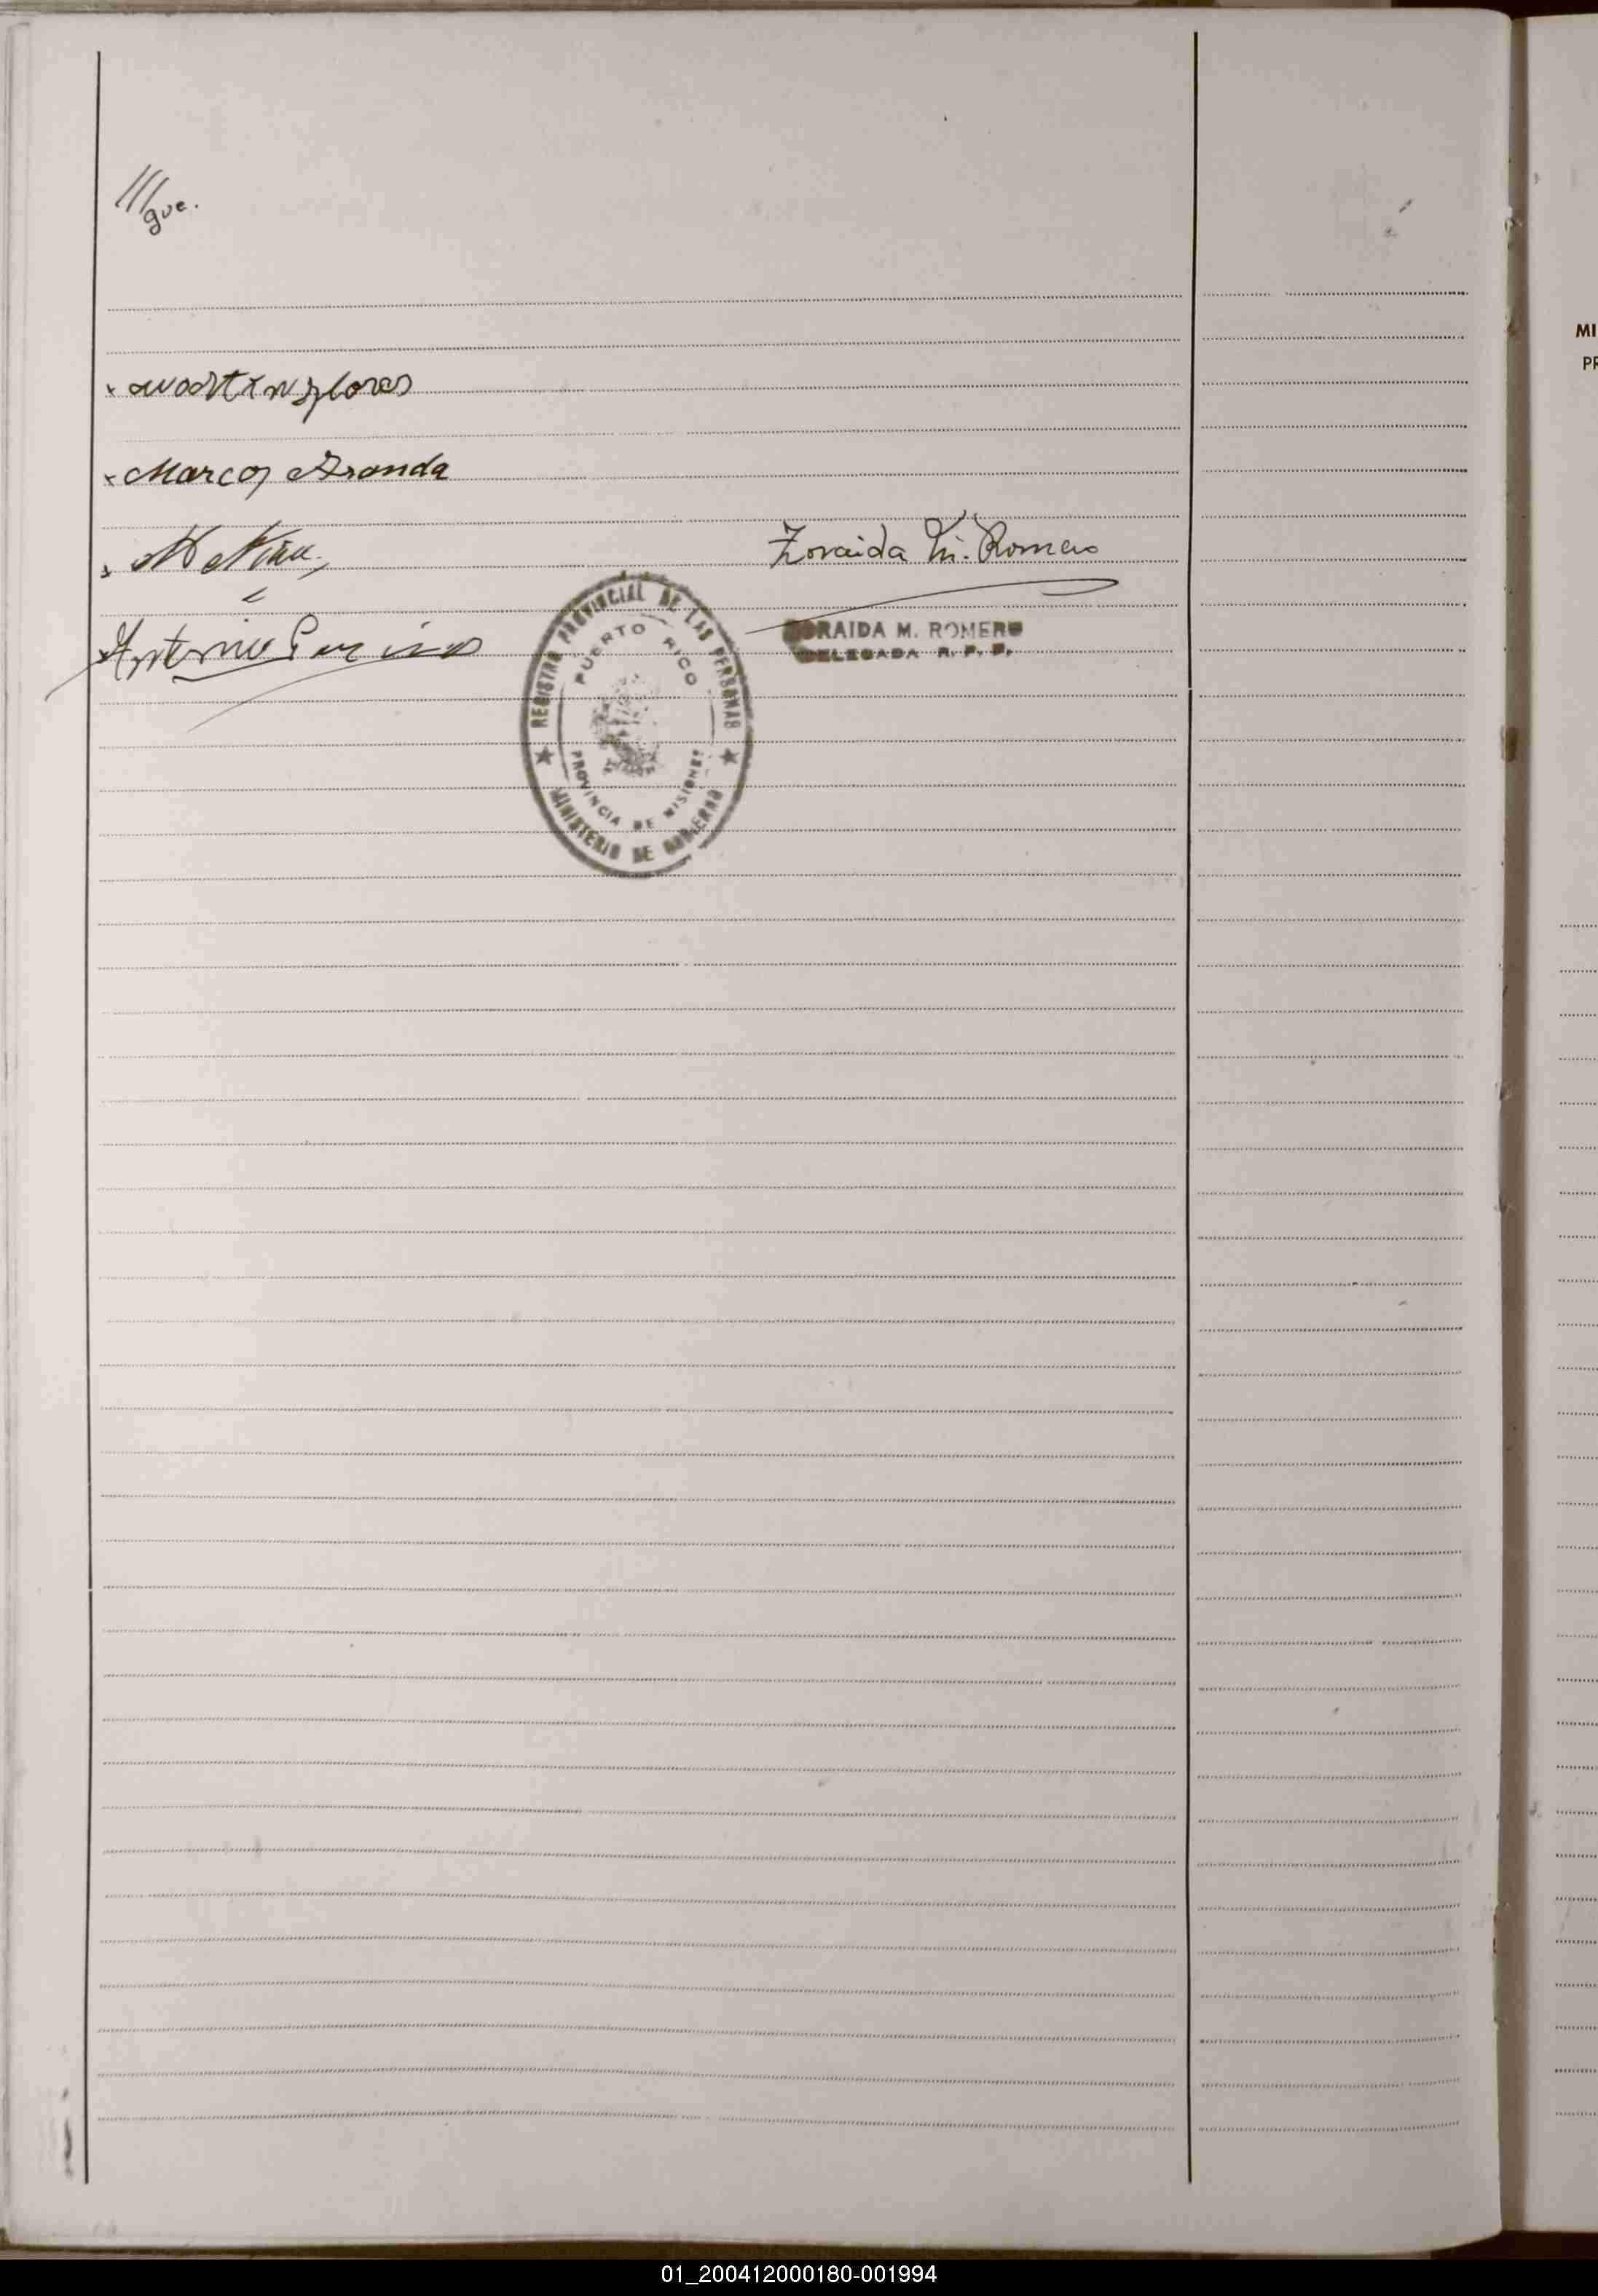 ///gue.
MI
PR
Martin Flores
x Marcos Aranda
x
Zoraida M. Romero
Antonio
ZORAIDA M. ROMERO
DELEGADA R. P. P.
REGISTRO PROVINCIAL DE LAS PERSONAS
PUERTO RICO
PROVINCIA DE MISIONES
MINISTERIO DE GOBIERNO
01_200412000180-001994